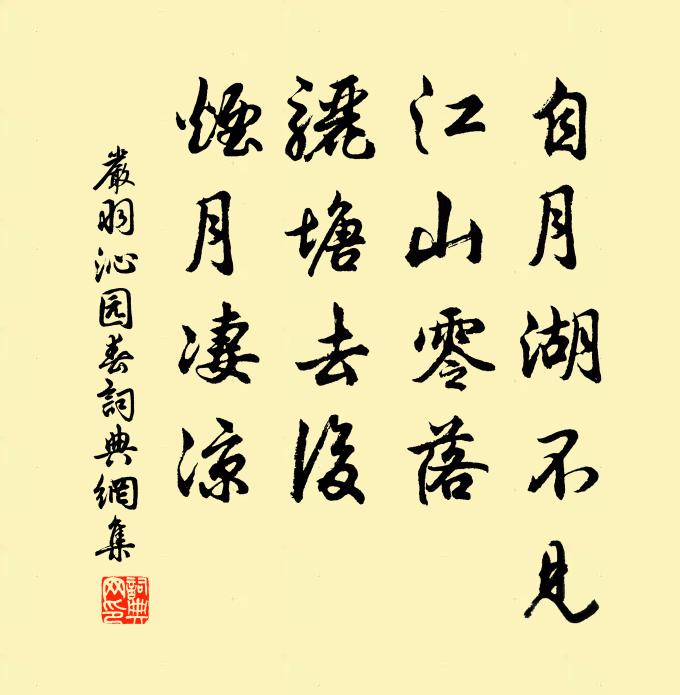 自月湖不見
江山零落
驪塘去後
煙月凄凉
嚴羽沁园春詞典網集
詞典網印